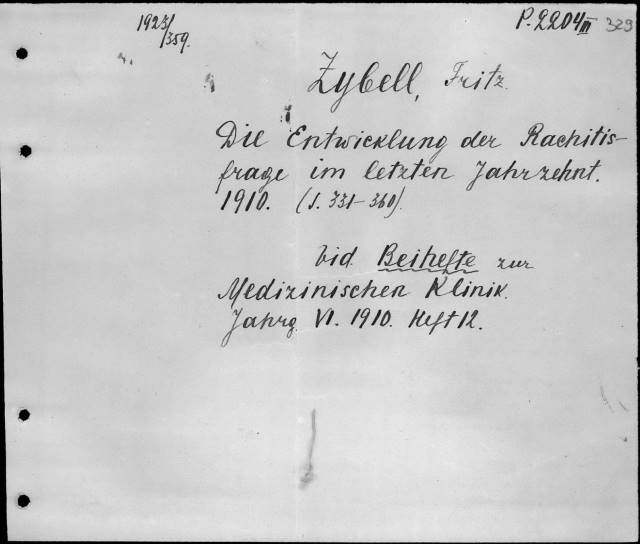 1923/359.
P. 2204 III 329
Zybell, Fritz.
Die Entwicklung der Rachitis-
frage im letzten Jahrzehnt.
1910. (S. 331-360).
vid. Beihefte zur
Medizinischen Klinik.
Jahrg. VI. 1910. Heft 12.